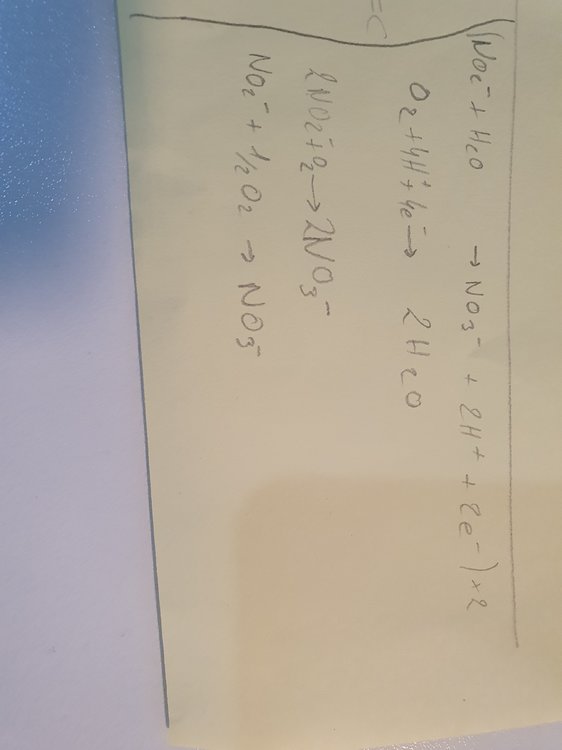 =C
(NO₂⁻ + H₂O → NO₃⁻ + 2H⁺ + 2e⁻) × 2
O₂ + 4H⁺ + 4e⁻ → 2H₂O
2NO₂⁻ + O₂ → 2NO₃⁻
NO₂⁻ + 1/2 O₂ → NO₃⁻